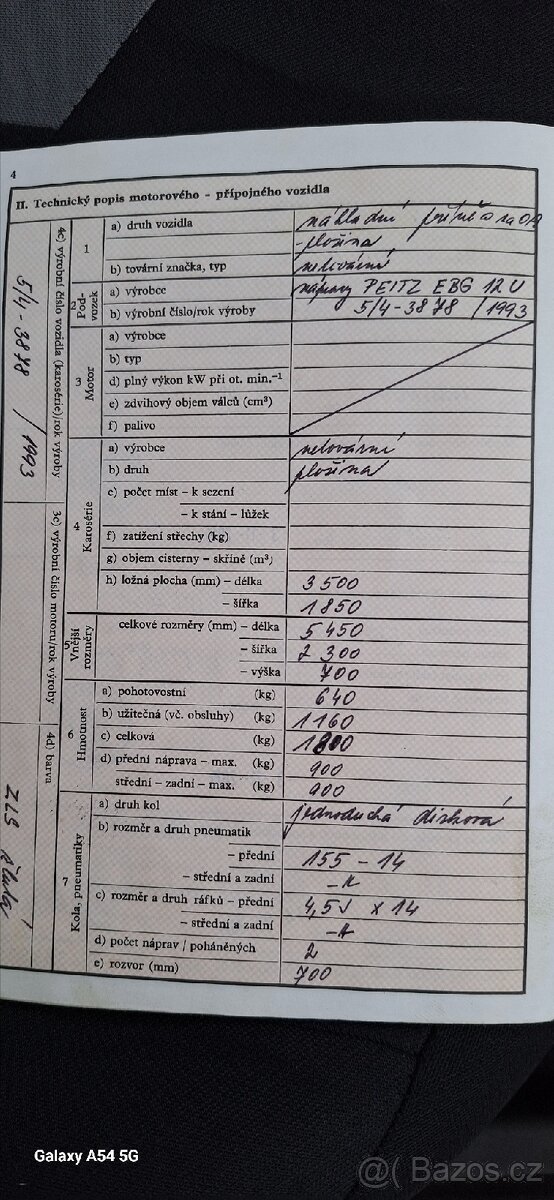 4
II. Technický popis motorového – přípojného vozidla
4c) výrobní číslo vozidla (karosérie)/rok výroby
5/4-3878 / 1993
3c) výrobní číslo motoru/rok výroby
4d) barva
1
a) druh vozidla nákladní za OA
- plošina
b) tovární značka, typ netovární
2 Pod-vozek
a) výrobce nápravy PEITZ EBG 12 U
b) výrobní číslo/rok výroby 5/4-3878 / 1993
3 Motor
a) výrobce
b) typ
d) plný výkon kW při ot. min.⁻¹
e) zdvihový objem válců (cm³)
f) palivo
4 Karosérie
a) výrobce netovární
b) druh plošina
c) počet míst – k sezení
– k stání – lůžek
f) zatížení střechy (kg)
g) objem cisterny – skříně (m³)
h) ložná plocha (mm) – délka 3500
– šířka 1850
5 Vnější rozměry
celkové rozměry (mm) – délka 5450
– šířka 2300
– výška 700
6 Hmotnost
a) pohotovostní (kg) 640
b) užitečná (vč. obsluhy) (kg) 1160
c) celková (kg) 1800
d) přední náprava – max. (kg) 900
střední – zadní – max. (kg) 900
7 Kola, pneumatiky
a) druh kol jednoduchá disková
b) rozměr a druh pneumatik
– přední 155 - 14
– střední a zadní -"-
c) rozměr a druh ráfků – přední 4,5J x 14
– střední a zadní -"-
d) počet náprav / poháněných 2
e) rozvor (mm) 700
Galaxy A54 5G
@( Bazos.cz